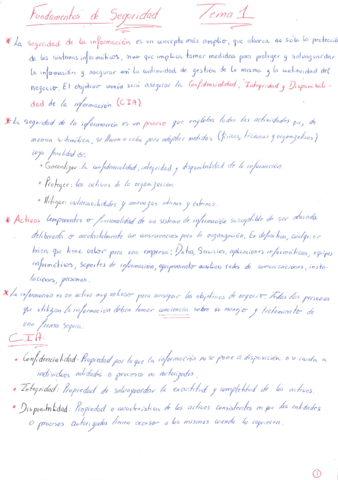 Fundamentos de Seguridad Tema 1
* La seguridad de la información es un concepto más amplio, que abarca no sólo la protección
de los sistemas informáticos, sino que implica tomar medidas para proteger y salvaguardar
la información y asegurar así la continuidad de gestión de la misma y la continuidad del
negocio. El objetivo sería asegurar la Confidencialidad, Integridad y Disponibili-
dad de la información (CIA)
* La seguridad de la información es un proceso que engloba todas las actividades que, de
manera sistemática, se llevan a cabo para adoptar medidas (físicas, técnicas y organizativas)
cuya finalidad es:
• Garantizar la confidencialidad, integridad y disponibilidad de la información.
• Proteger los activos de la organización
• Mitigar vulnerabilidades y amenazas internas y externas.
* Activos Componentes o funcionalidad de un sistema de información susceptible de ser atacado
deliberada o accidentalmente con consecuencias para la organización. En definitiva, cualquier
bien que tiene valor para una empresa: Datos, Servicios, aplicaciones informáticas, equipos
informáticos, soportes de información, equipamiento auxiliar, redes de comunicaciones, insta-
laciones, personas.
* La información es un activo muy valioso para conseguir los objetivos de negocio. Todas las personas
que utilizan la información deben tomar conciencia sobre su manejo y tratamiento de
una forma segura.
CIA:
• Confidencialidad: Propiedad por la que la información no se pone a disposición, o se revela a
individuos, entidades o procesos no autorizados.
• Integridad: Propiedad de salvaguardar la exactitud y completitud de los activos.
• Disponibilidad: Propiedad o característica de los activos consistente en que las entidades
o procesos autorizados tienen acceso a los mismos cuando lo requieren.
1